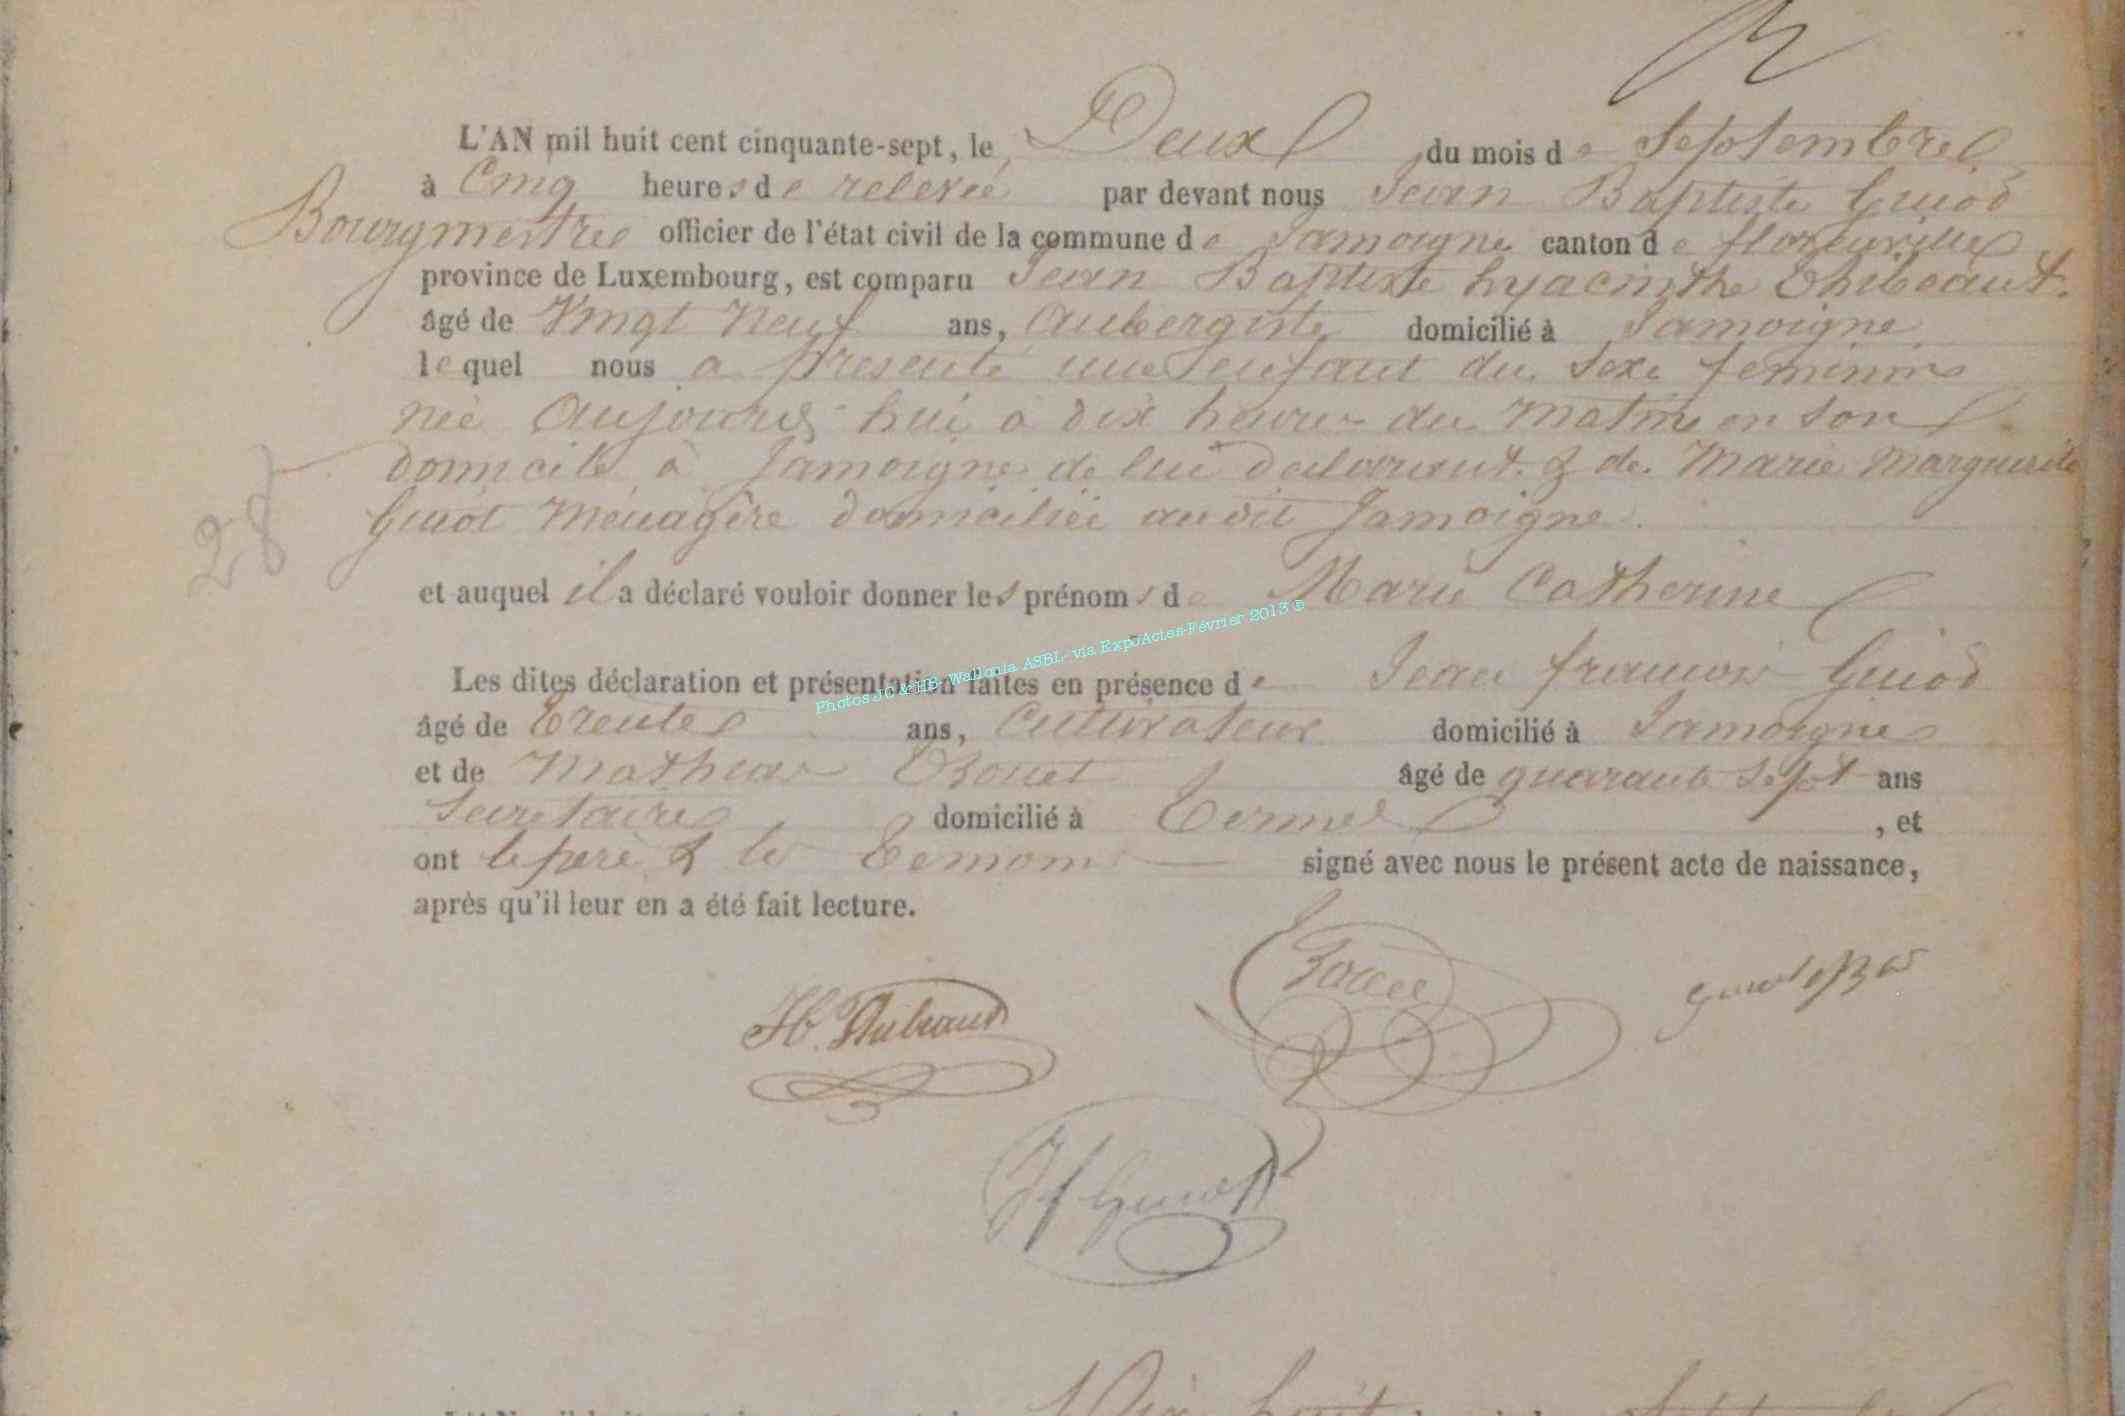 L'AN mil huit cent cinquante-sept, le Deux du mois de Septembre
à Cinq heures de relevée par devant nous Jean Baptiste Guiot
Bourgmestre officier de l'état civil de la commune de Jamoigne canton de florenville
province de Luxembourg, est comparu Jean Baptiste hyacinthe Thibeaut.
âgé de Vingt Neuf ans, Aubergiste domicilié à Jamoigne
lequel nous a présenté une enfant du sexe féminin
née Aujourd'hui à dix heures du Matin en son
domicile à Jamoigne de lui déclarant & de Marie Marguerite
Guiot Ménagère domiciliée audit Jamoigne.
28
et auquel il a déclaré vouloir donner les prénoms de Marie Catherine
Photos JC & HS- Wallonia ASBL- via ExpoActes-Février 2013 ©
Les dites déclaration et présentation faites en présence de Jean françois Guiot
âgé de Trente ans, Cultivateur domicilié à Jamoigne
et de Mathias âgé de quarante sept ans
Secrétaire domicilié à Termes , et
ont le père & les Témoins signé avec nous le présent acte de naissance,
après qu'il leur en a été fait lecture.
H. Thibeaut
Jf Guiot
Dix huit